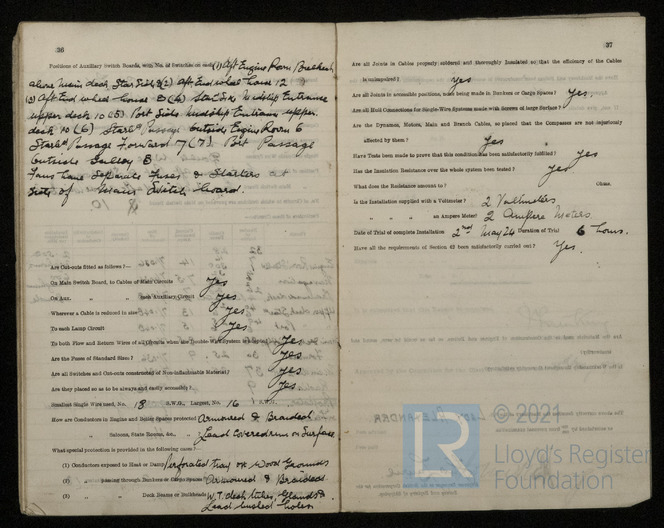 36
Positions of Auxiliary Switch Boards, with No. of Switches on each (1) Aft Engine Room Bulkhead
above Main deck, Star Side 8 (2) Aft End wheel house 12
(3) Aft End wheel house 8 (4) Starb Side Midship Entrance
upper deck 10 (5) Port Side Midship Entrance upper
deck 10 (6) Starbd Passage outside Engine Room 6
Starbd Passage Forward 7 (7) Port Passage
outside Galley 8
Fans have separate Fuses & Starters at
of Main Switch Board.
Are Cut-outs fitted as follows?—
On Main Switch Board, to Cables of Main Circuits Yes
On Aux. " " each Auxiliary Circuit Yes
Wherever a Cable is reduced in size Yes
To each Lamp Circuit Yes
To both Flow and Return Wires of all Circuits when the Double-Wire System is adopted Yes
Are the Fuses of Standard Sizes? Yes
Are all Switches and Cut-outs constructed of Non-inflammable Material? Yes
Are they placed so as to be always and easily accessible? Yes
Smallest Single Wire used, No. 18 S.W.G., Largest, No. 16 S.W.G.
How are Conductors in Engine and Boiler Spaces protected Armoured & Braided
" " Saloons, State Rooms, &c., " Lead Covered run on Surface
What special protection is provided in the following cases?—
(1) Conductors exposed to Heat or Damp Perforated tray or Wood Grounds
(2) " passing through Bunkers or Cargo Spaces Armoured & Braided
(3) " " Deck Beams or Bulkheads W.T. deck tubes, Glands &
Lead bushed holes
37
Are all Joints in Cables properly soldered and thoroughly insulated so that the efficiency of the Cables
is unimpaired? Yes
Are all Joints in accessible positions, none being made in Bunkers or Cargo Spaces? Yes.
Are all Hull Connections for Single-Wire Systems made with Screws of large Surface?
Are the Dynamos, Motors, Main and Branch Cables, so placed that the Compasses are not injuriously
affected by them? Yes
Have Tests been made to prove that this condition has been satisfactorily fulfilled? Yes
Has the Insulation Resistance over the whole system been tested? Yes
What does the Resistance amount to? Ohms.
Is the Installation supplied with a Voltmeter? 2 Voltmeters
" " " an Ampere Meter? 2 Ampere Meters
Date of Trial of complete Installation 2nd May 24 Duration of Trial 6 hours.
Have all the requirements of Section 42 been satisfactorily carried out? Yes.
© 2021
LR
Lloyd's Register
Foundation